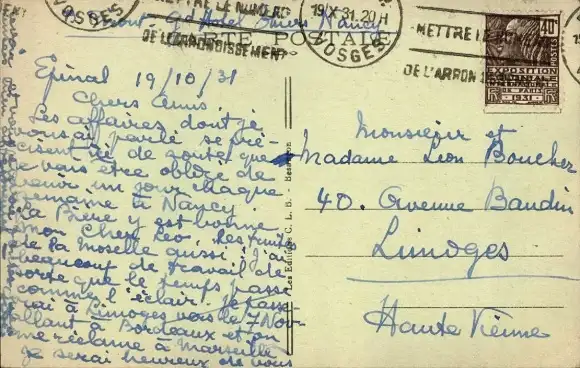 METTRE LE NUMERO
DE L'ARRONDISSEMENT
19/X 31. 20 H
VOSGES
METTRE LE
DE L'ARRON
VOSGES
40c
EXPOSITION
COLONIALE
PARIS 1931
Gd Hotel Nancy
CARTE POSTALE
Epinal 19/10/31
Chers Amis,
Les affaires dont je
vous ai parlé se pré-
cisent de sorte que
je vais être obligé de
venir un jour chaque
semaine à Nancy.
La Bière y est bonne
mon Cher Léo, les fruits
de la Moselle aussi. J'ai
beaucoup de travail de
sorte que le temps passe
comme l'éclair. Je passe-
rai à Limoges vers le 7 Nov
allant à Bordeaux et on
me réclame à Marseille
Je serai heureux de vous
Les Editions C. L. B. - Besançon
Monsieur et
Madame Léon Boucher
40. Avenue Baudin
Limoges
Haute Vienne